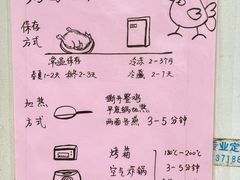 保存
方式
常温保存
冷冻 2-3个月
春夏1-2天 秋冬2-3天
冷藏 2-7天
加热
方式
撕开整鸡
平底锅加热
两面各煎 3-5分钟
烤箱
180℃-200℃
空气炸锅
3-5分钟
专业定
37186